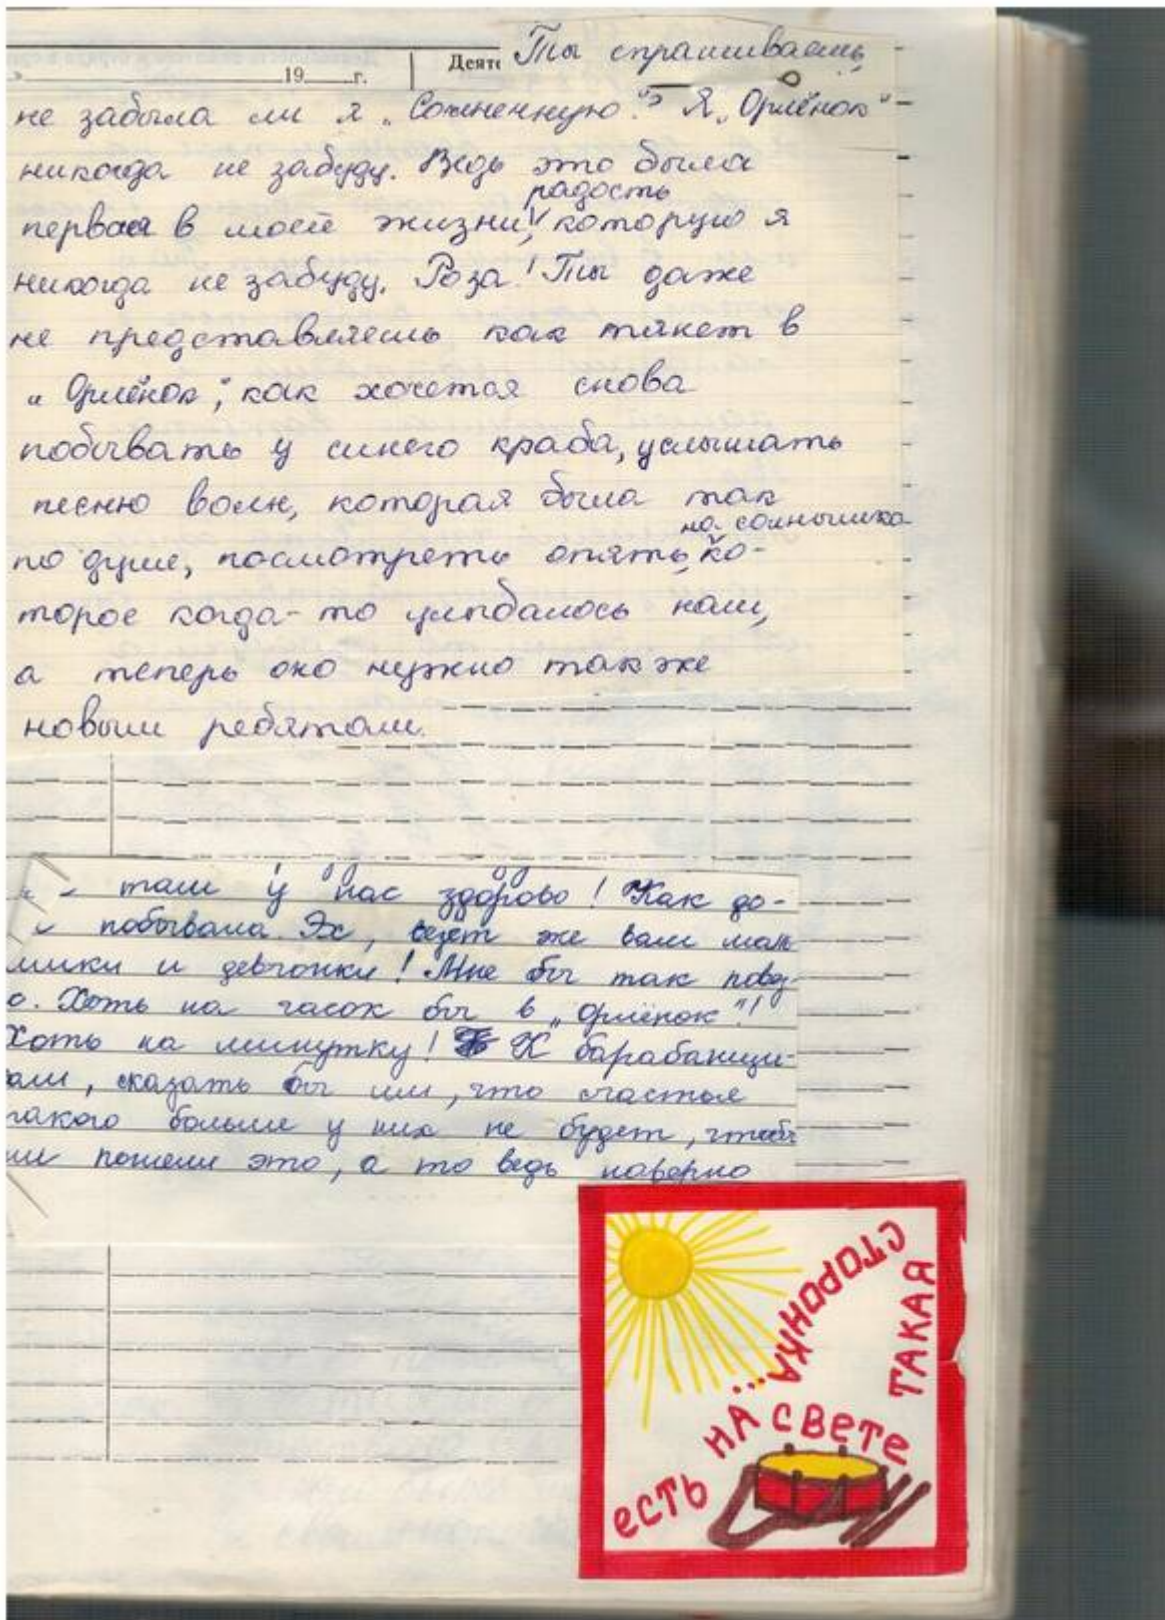 19 г. Деят Ты спрашиваешь,
не забыла ли я „Солнечную"? Я „Орлёнок"
никогда не забуду. Ведь это была
радость
первая в моей жизни, которую я
никогда не забуду. Роза! Ты даже
не представляешь как тянет в
„Орлёнок", как хочется снова
побывать у синего краба, услышать
песню волн, которая была так
на солнышко
по душе, посмотреть опять, ко-
торое когда-то улыбалось нам,
а теперь оно нужно также
новым ребятам.
там у нас здорово! Как до-
побывала. Эх, везет же вам маль
мики и девчонки! Мне бы так повез-
о. Хоть на часок бы в „Орлёнок"!
Хоть на минутку! К барабанщи-
ам, сказать бы им, что счастья
такого больше у них не будет, чтобы
ни поняли это, а то ведь наверно
есть на свете
такая
сторонка...